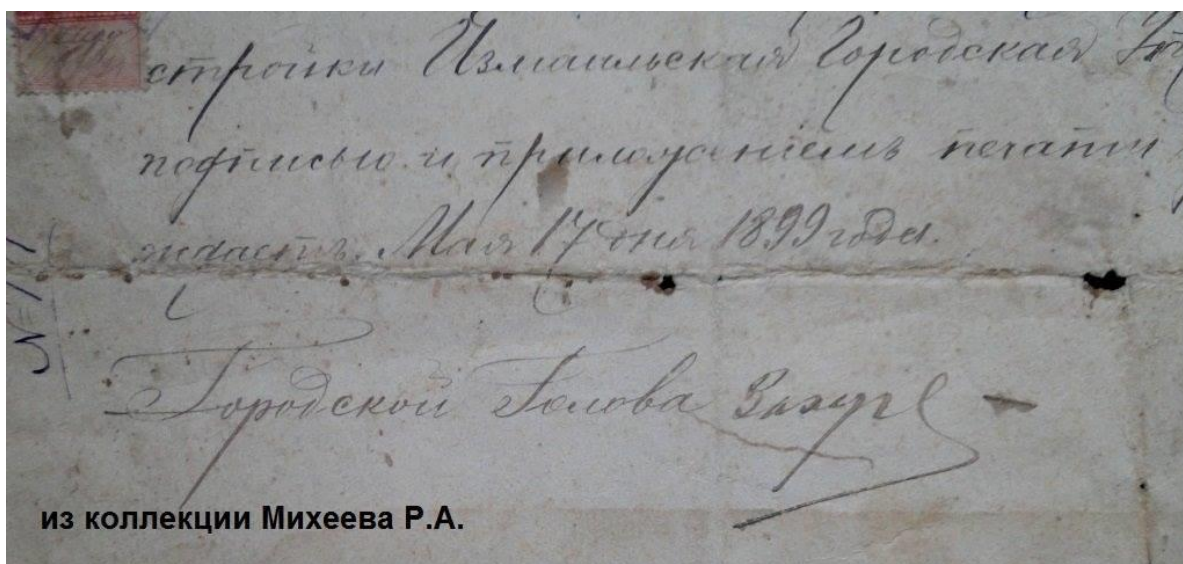 стройки Измаильская Городская
подписью и приложенiемъ печати
Мая 17 дня 1899 года.
Городской Голова
из коллекции Михеева Р.А.